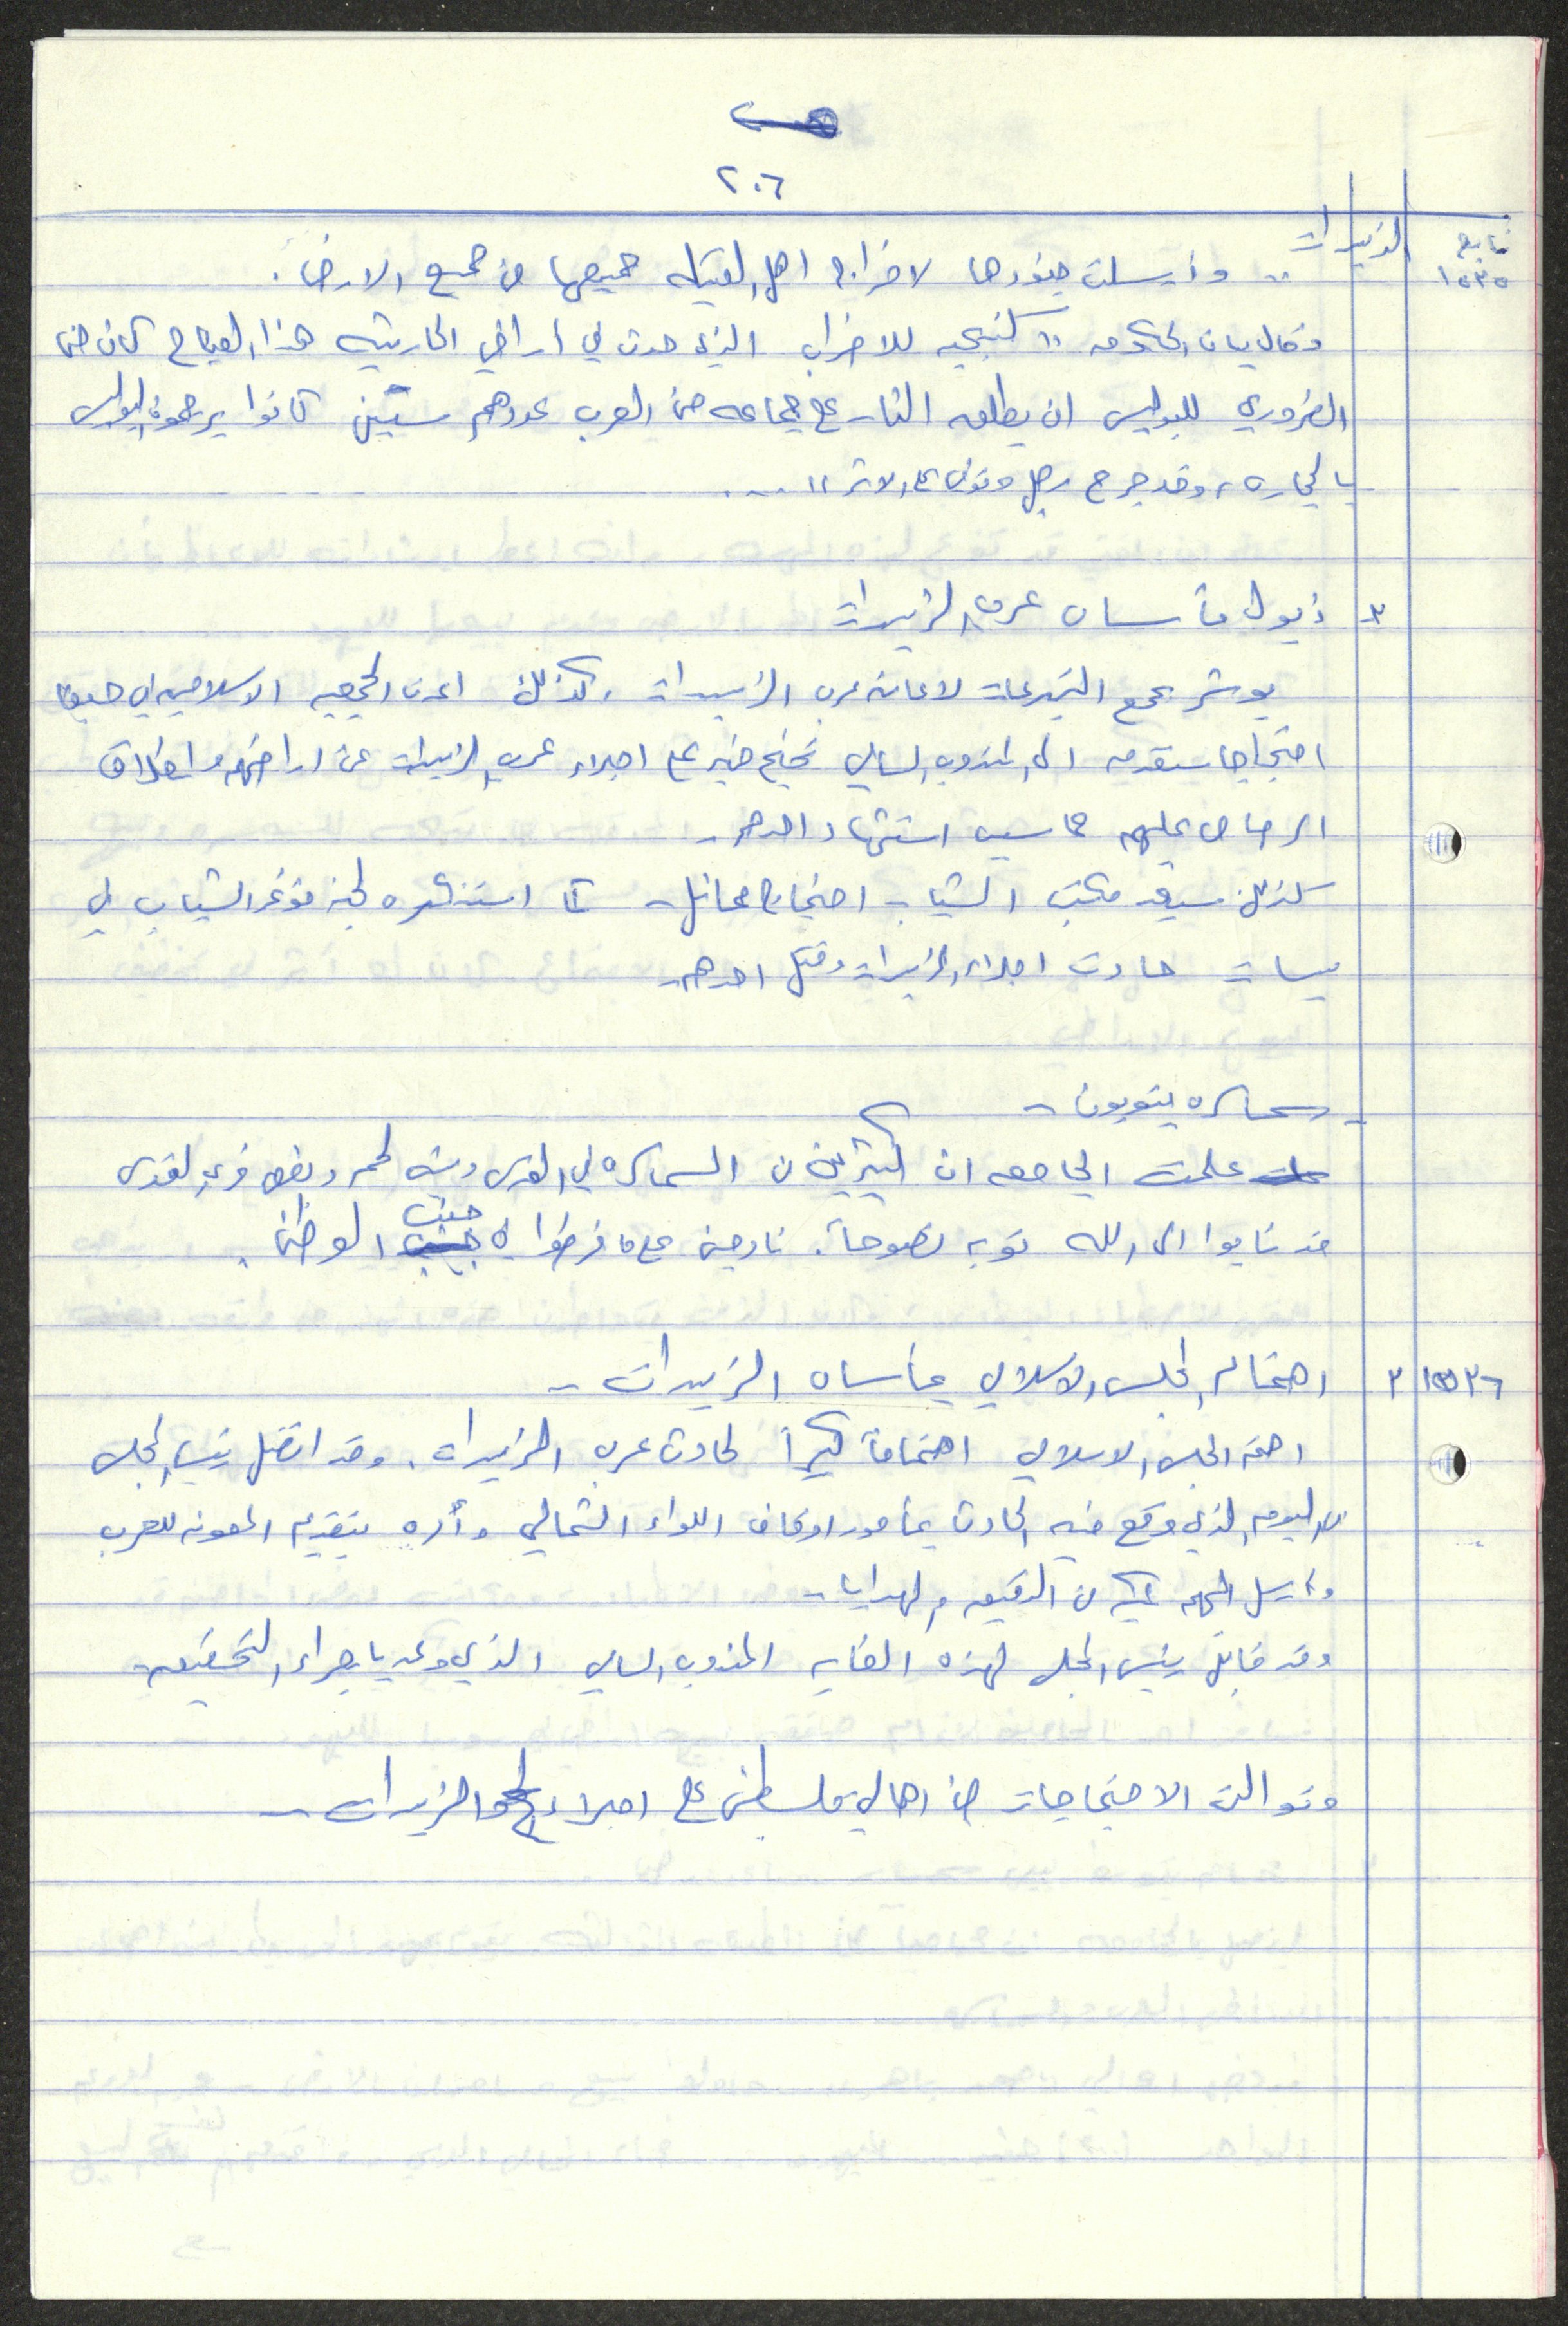 ٢٠٦
تابع
١٥٣٥
الزبيدات
.. وأرسلت جنودها لاخراج اهل القبيله جميعها من جميع الارض.
وقال بيان الحكومه "كنتيجه للاضراب الذي حدث في اراضي الحارثيه هذا الصباح كان من
الضروري للبوليس ان يطلق النار على جماعه من العرب عددهم ستين كانوا يرجمون البوليس
بالحجاره، وقد جرح رجل وتوفى على الاثر" ...
٣ ذيول مأساه عرب الزبيدات
بوشر بجمع التبرعات لاعانة عرب الزبيدات، وكذلك اعدت الجمعيه الاسلاميه في حيفا
احتجاجا ستقدمه الى المندوب السامي تحتج فيه على اجلاء عرب الزبيدات عن اراضيهم واطلاق
الرصاص عليهم مما سبب استشهاد احدهم -
كذلك سيقدم مكتب الشباب احتجاجا مماثل - كما استنكره لجنة مؤتمر الشباب في
بيسان حادث اجلاء الزبيدات وقتل احدهم -
- سماسره يتوبون -
علمت الجامعه ان كثيرين من السماسره في القدس وبيت لحم وبعض قرى القدس
قد تابوا الى الله توبه نصوحاً. نادمين على ما فرطوا في جنب الوطن.
١٥٣٦ ٣ اهتمام المجلس الاسلامي بمأساه الزبيدات -
اهتم المجلس الاسلامي اهتماماً كبيراً لحادث عرب الزبيدات. وقد اتصل رئيس المجلس
في اليوم الذي وقع فيه الحادث بمأمور اوقاف اللواء الشمالي وأمره بتقديم المعونه للعرب
وأرسل اليهم من الدقيق والهدايا -
وقد قابل رئيس المجلس لهذه الغايه المندوب السامي الذي وعد باجراء التحقيق -
وتوالت الاحتجاجات من اهالي فلسطين على اجلاء الزبيدات -